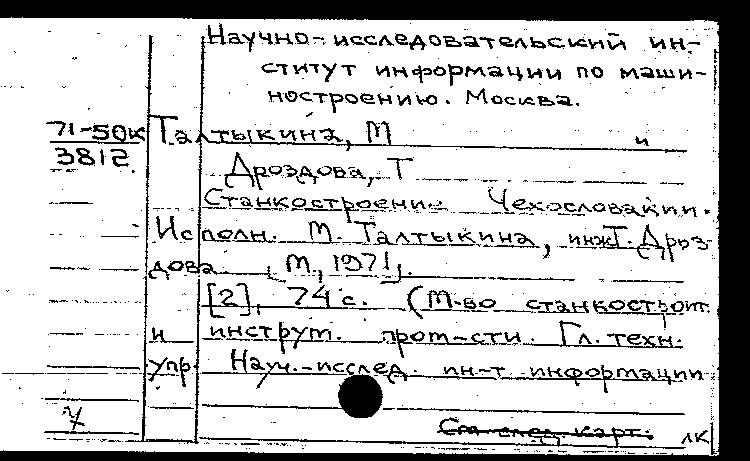 Научно-исследовательский ин-
ститут информации по маши-
ностроению. Москва.
71-50к Талтыкина, М и
3812 Дроздова, Т
Станкостроение Чехословакии.
Исполн. М. Талтыкина, инж Т. Дроз-
дова [М., 1971].
[2], 74 с. (М-во станкостроит.
и инструм. пром-сти. Гл. техн.
упр. Науч.-исслед. ин-т информации
См след. карт. лк